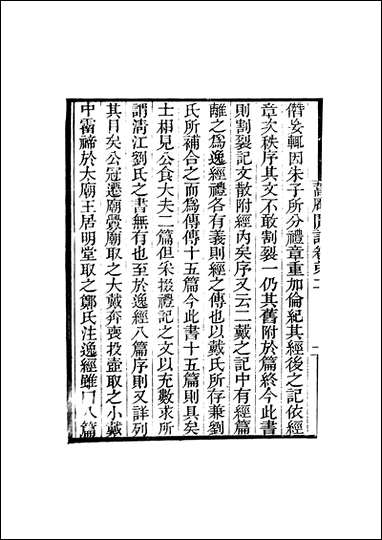 僭妄輒因朱子所分禮章重加倫紀其經後之記依經
章次秩序其文不敢割裂一仍其舊附於篇終今此書
則割裂記文散附經內矣序又云二戴之記中有經篇
離之為逸經禮各有義則經之傳也以戴氏所存兼劉
氏所補合之而為傳傳十五篇今此書十五篇則具矣
士相見公食大夫二篇但采掇禮記之文以充數求所
謂清江劉氏之書無有也至於逸經八篇序則又詳列
其目矣公冠遷廟釁廟取之大戴奔喪投壺取之小戴
中霤禘於太廟王居明堂取之鄭氏注逸經雖曰八篇
蒿庵閒話卷